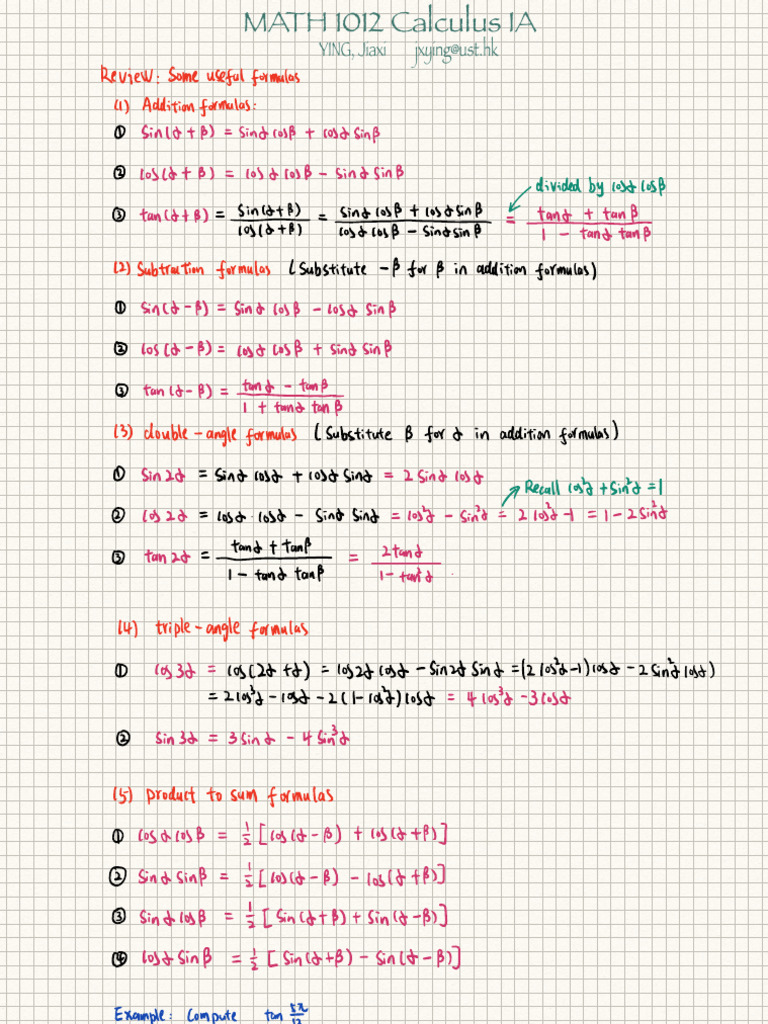 MATH 1012 Calculus IA
YING, Jiaxi jxying@ust.hk
Review: Some useful formulas
(1) Addition formulas:
① sin(α + β) = sinα cosβ + cosα sinβ
② cos(α + β) = cosα cosβ − sinα sinβ
divided by cosα cosβ
③ tan(α+β) = sin(α+β) / cos(α+β) = (sinα cosβ + cosα sinβ) / (cosα cosβ − sinα sinβ) = (tanα + tanβ) / (1 − tanα tanβ)
(2) Subtraction formulas (Substitute −β for β in addition formulas)
① sin(α − β) = sinα cosβ − cosα sinβ
② cos(α − β) = cosα cosβ + sinα sinβ
③ tan(α − β) = (tanα − tanβ) / (1 + tanα tanβ)
(3) double-angle formulas (Substitute β for α in addition formulas)
① sin2α = sinα cosα + cosα sinα = 2 sinα cosα
Recall cos²α + sin²α = 1
② cos2α = cosα·cosα − sinα sinα = cos²α − sin²α = 2cos²α − 1 = 1 − 2sin²α
③ tan2α = (tanα + tanβ) / (1 − tanα tanβ) = 2tanα / (1 − tan²α)
(4) triple-angle formulas
① cos3α = cos(2α + α) = cos2α cosα − sin2α sinα = (2cos²α − 1)cosα − 2sin²α cosα)
= 2cos³α − cosα − 2(1 − cos²α)cosα = 4cos³α − 3cosα
② sin3α = 3sinα − 4sin³α
(5) product to sum formulas
① cosα cosβ = ½ [cos(α − β) + cos(α + β)]
② sinα sinβ = ½ [cos(α − β) − cos(α + β)]
③ sinα cosβ = ½ [sin(α + β) + sin(α − β)]
④ cosα sinβ = ½ [sin(α + β) − sin(α − β)]
Example: Compute tan 5π/12